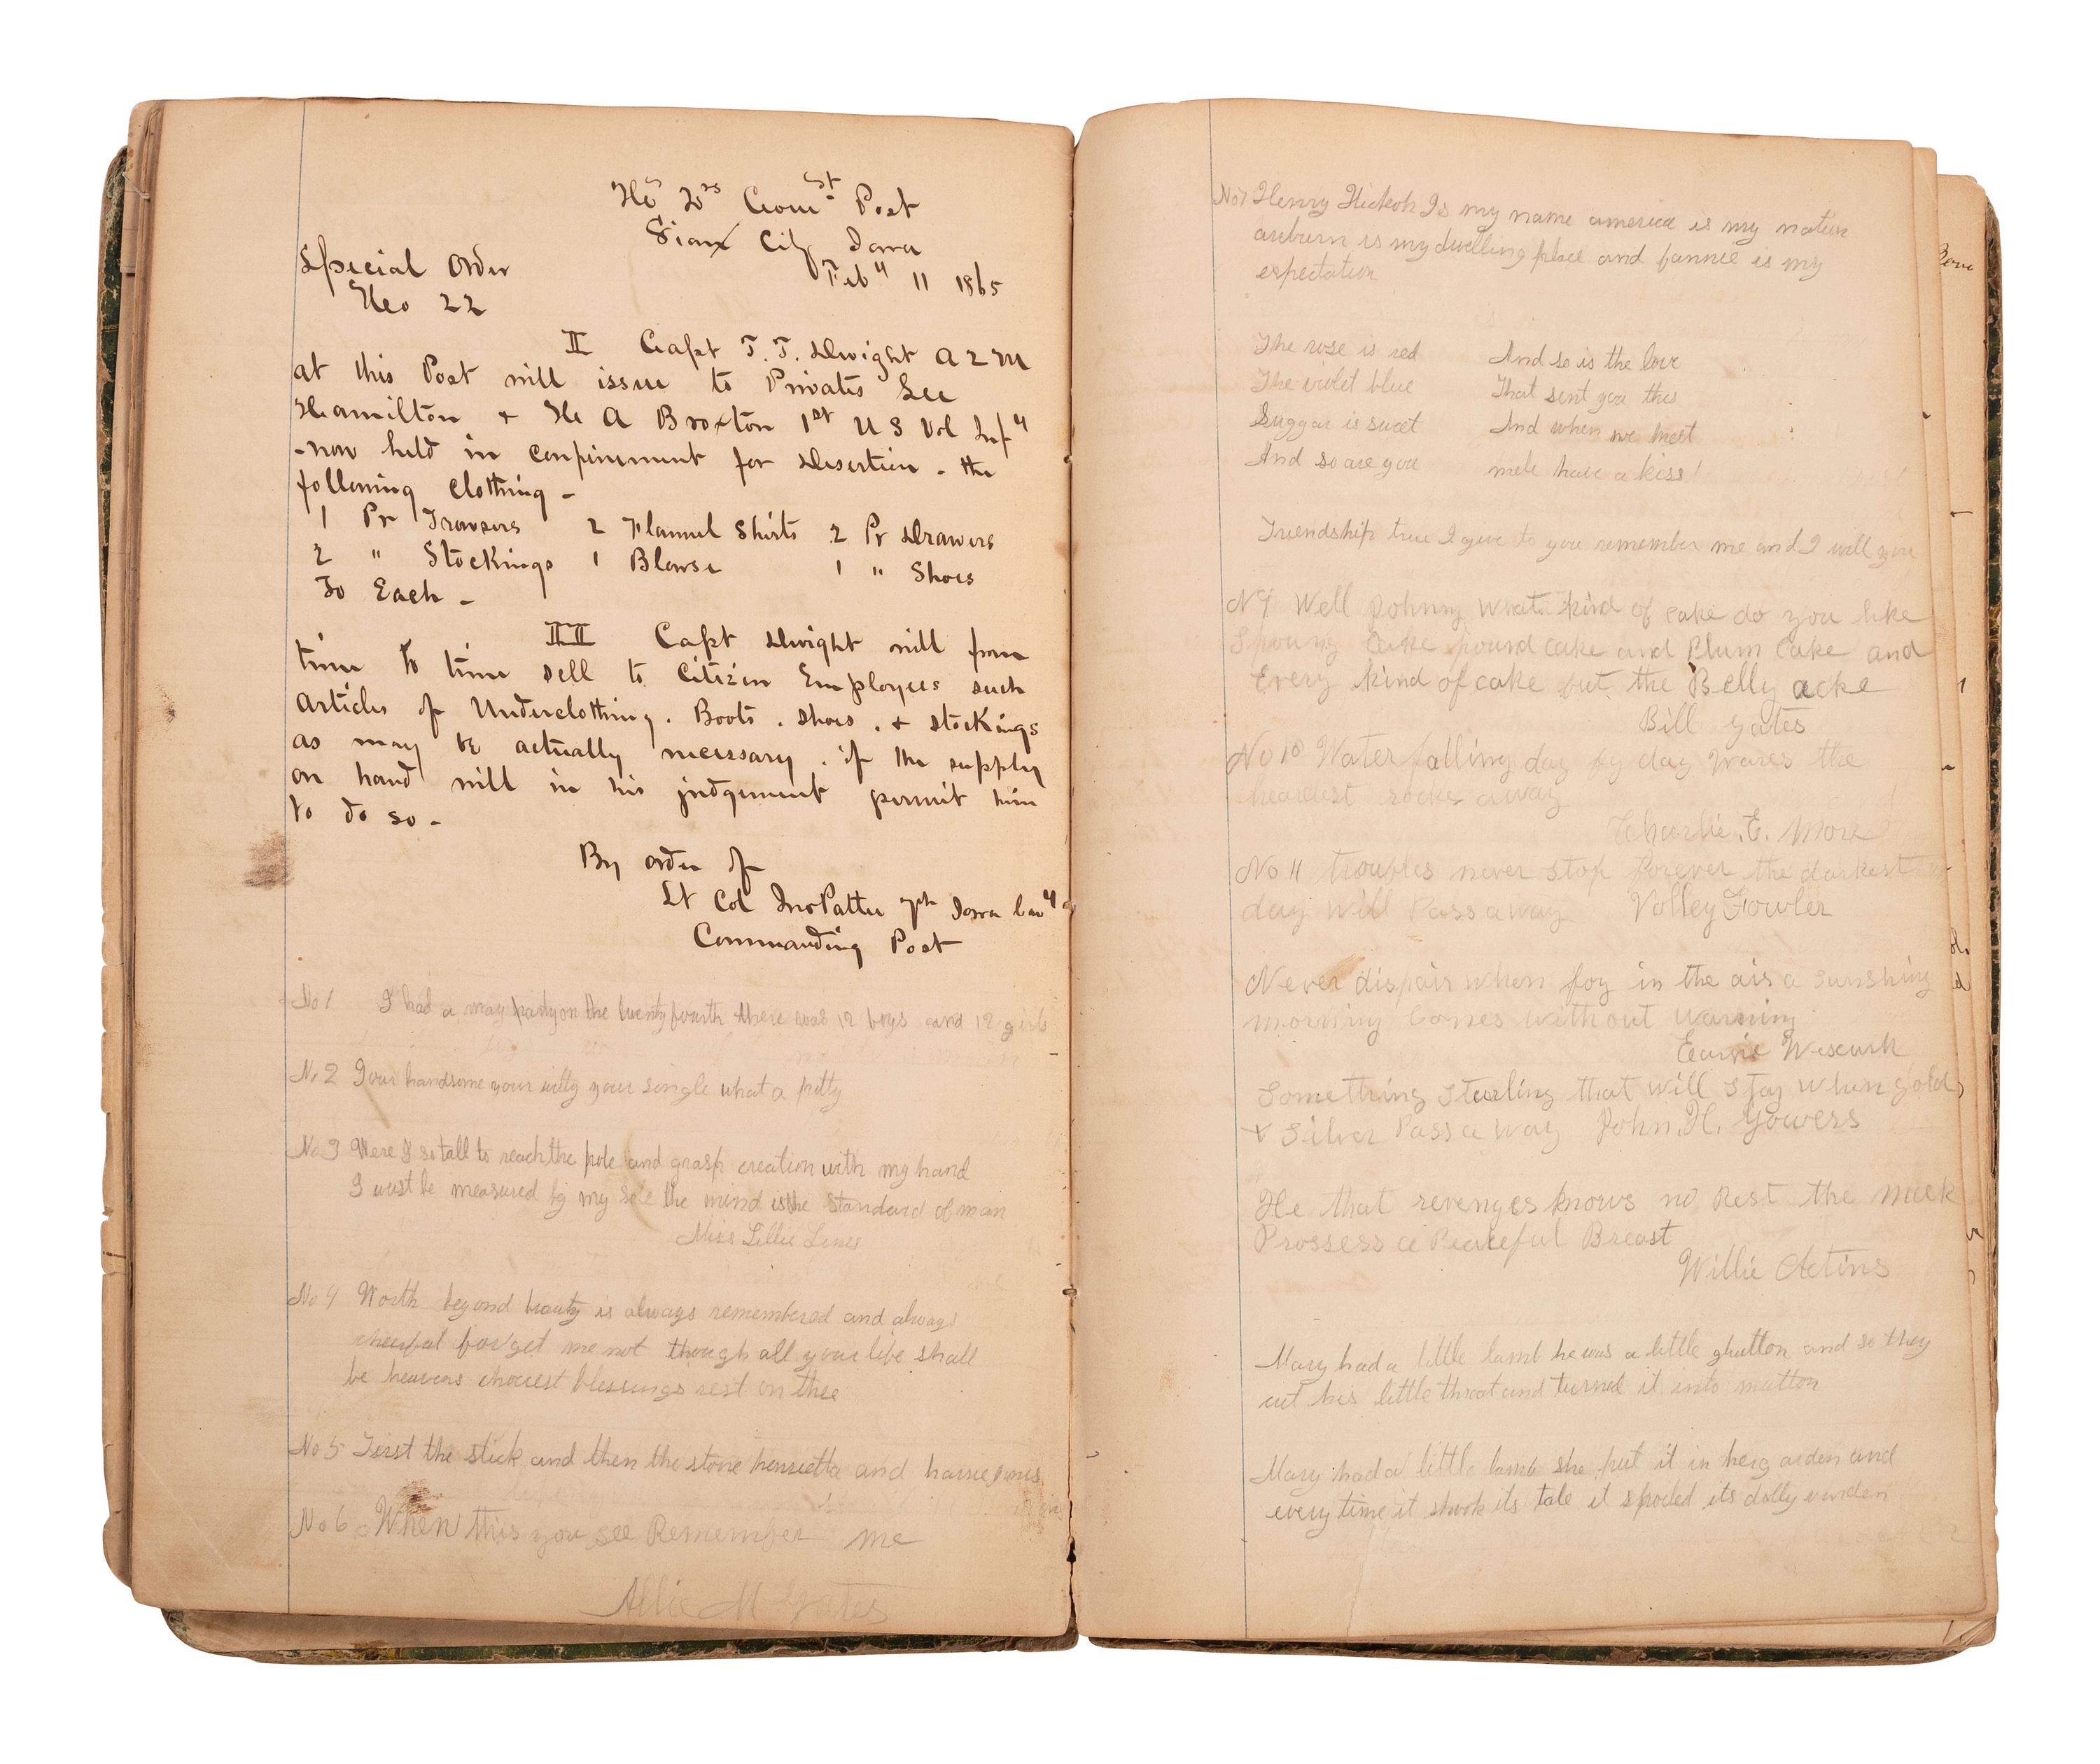 Hd Qrs Comst Post
Sioux City Iowa
Feby 11 1865
Special Order
No 22
II Capt T. T. Dwight A Q M
at this Post will issue to Privates Lee
Hamilton + H A Broxton 1st U S Vol Infy
- now held in confinement for desertion - the
following clothing -
1 Pr Trowsers 2 Flannel Shirts 2 Pr Drawers
2 " Stockings 1 Blouse 1 " Shoes
To Each -
III Capt Dwight will from
time to time sell to Citizen Employees such
articles of Underclothing. Boots. shoes. + stockings
as may be actually necessary. if the supply
on hand will in his judgement permit him
to do so -
By order of
Lt Col Jno Pattee 7th Iowa Cavy
Commanding Post
No 1 I had a may party on the twenty fourth there was 12 boys and 12 girls
No 2 Your handsome your witty your single what a pitty
No 3 Were I so tall to reach the pole and grasp creation with my hand
I must be measured by my sole the mind is the standard of man
Miss Lillie Lines
No 4 Worth beyond beauty is always remembered and always
cheerful forget me not though all your life shall
be heavens choicest blessings rest on thee
No 5 First the stick and then the stone henrietta and
No 6 When this you see Remember me
Allie M Yates
No 7 Henry Hickok Is my name america is my nation
auburn is my dwelling place and fannie is my
espectation
The rose is red And so is the love
The violet blue That sent you this
Suggar is sweet And when we meet
And so are you mele have a kiss!
Friendship true I give to you remember me and I will you
N 9 Well Johnny what kind of cake do you like
Spoung Cake pound cake and Plum Cake and
Every kind of cake but the Belly acke
Bill Yates
No 10 Water falling day by day wares the
heardest rocke away
Charlie E. More
No 11 troubles never stop forever the darkest
day will Pass away Volley Fowler
Never dispair when fog in the air a sunshing
morning Comes without warning
Something Sterling that will Stay when gold
+ Silver Pass a way John H. Yowers
He that revenges knows no Rest the meek
Prossess a Peaceful Breast
Willie Actins
Mary had a little lamb he was a little glutton and so they
cut his little throat and turned it into mutton
Mary had a little lamb she put it in her garden and
every time it shook its tale it spoiled its dolly varden